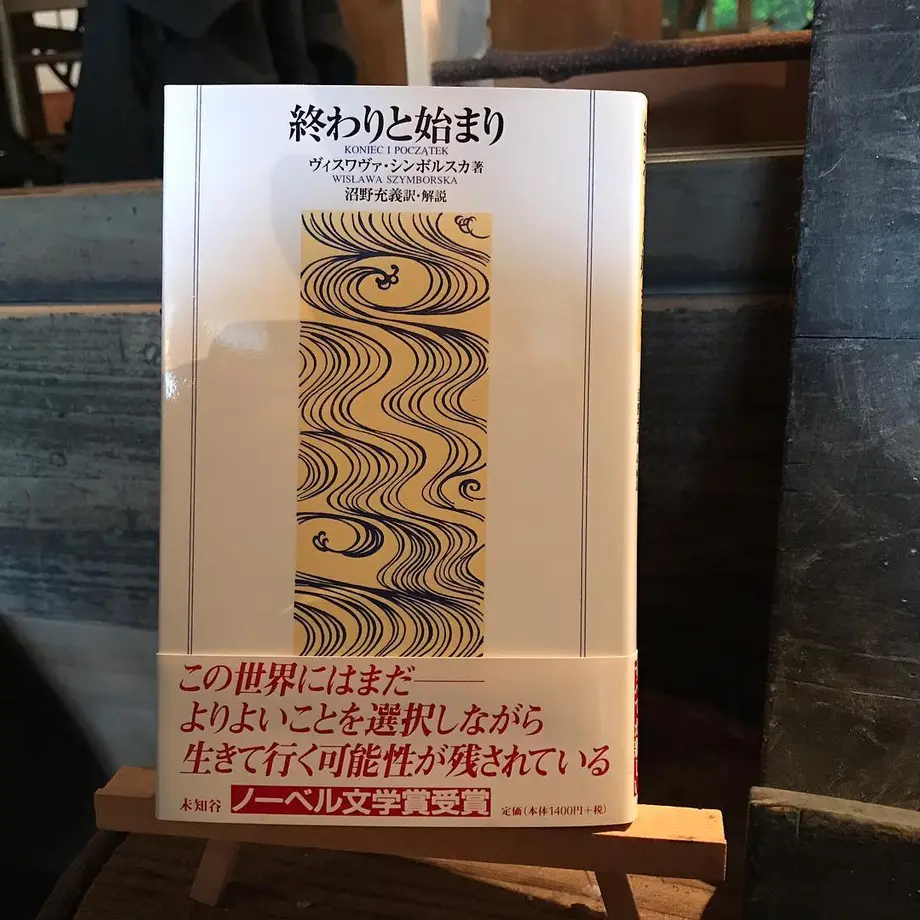 終わりと始まり
KONIEC I POCZĄTEK
ヴィスワヴァ・シンボルスカ著
WISŁAWA SZYMBORSKA
沼野充義訳・解説
この世界にはまだ――
よりよいことを選択しながら
生きて行く可能性が残されている
未知谷 ノーベル文学賞受賞 定価(本体1400円+税)